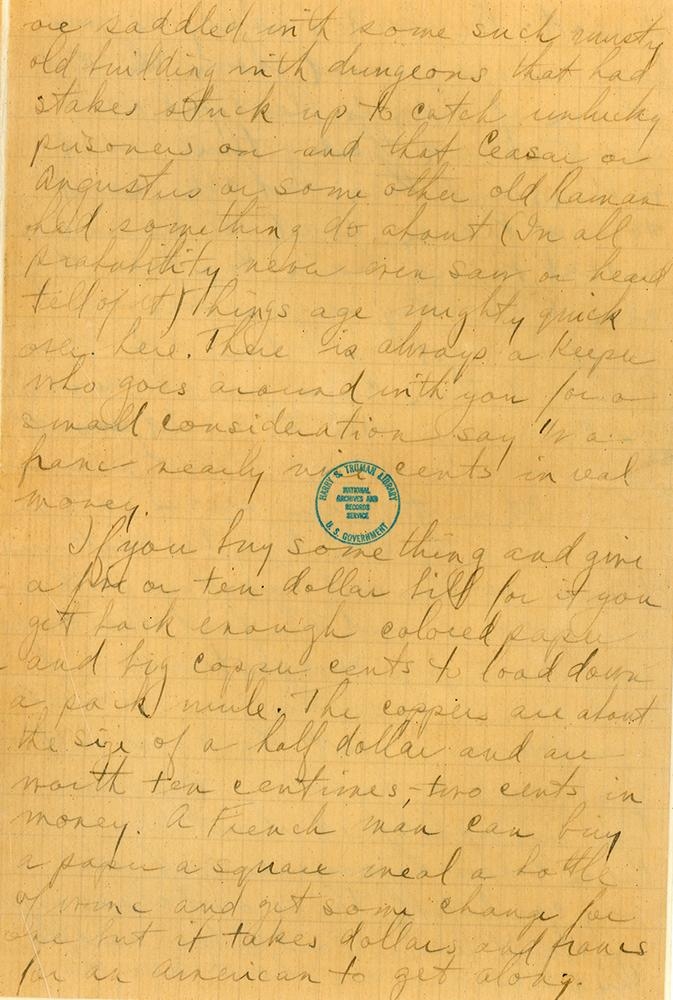 are saddled with some such musty
old building with dungeons that had
stakes stuck up to catch unlucky
prisoners on and that Ceasar or
Angustus or some other old Raman
had something do about (In all
probability never even saw or heard
tell of it) Things age mighty quick
over here. There is always a keeper
who goes around with you for a
small consideration say 1/2 a
franc nearly nine cents in real
money.
HARRY S. TRUMAN LIBRARY
NATIONAL
ARCHIVES AND
RECORDS
SERVICE
U. S. GOVERNMENT
If you buy something and give
a five or ten dollar bill for it you
get back enough colored paper
and big copper cents to load down
a pack mule. The coppers are about
the size of a half dollar and are
worth ten centimes, two cents in
money. A French man can buy
a paper a square meal a bottle
of wine and get some change for
one but it takes dollars and francs
for an American to get along.